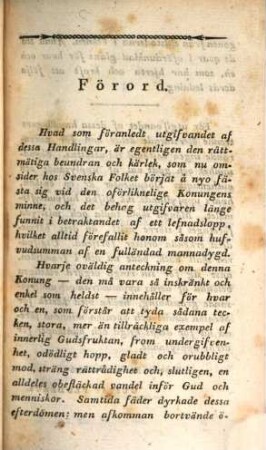 Förord.
Hvad som föranledt utgifvandet af
dessa Handlingar, är egentligen den rätt-
mätiga beundran och kärlek, som nu om-
sider hos Svenska Folket börjat å nyo fä-
sta sig vid den oförliknelige Konungens
minne, och det behag utgifvaren länge
funnit i betraktandet af ett lefnadslopp,
hvilket alltid förefallit honom såsom huf-
vudsumman af en fulländad mannadygd.
Hvarje oväldig anteckning om denna
Konung — den må vara så inskränkt och
enkel som heldst — innehåller för hvar
och en, som förstår att tyda sådana tec-
ken, stora, mer än tillräckliga exempel af
innerlig Gudsfruktan, from undergifven-
het, odödligt hopp, gladt och orubbligt
mod, sträng rättrådighet och, slutligen, en
alldeles obefläckad vandel inför Gud och
menniskor. Samtida fäder dyrkade dessa
efterdömen; men afkomman bortvände ö-